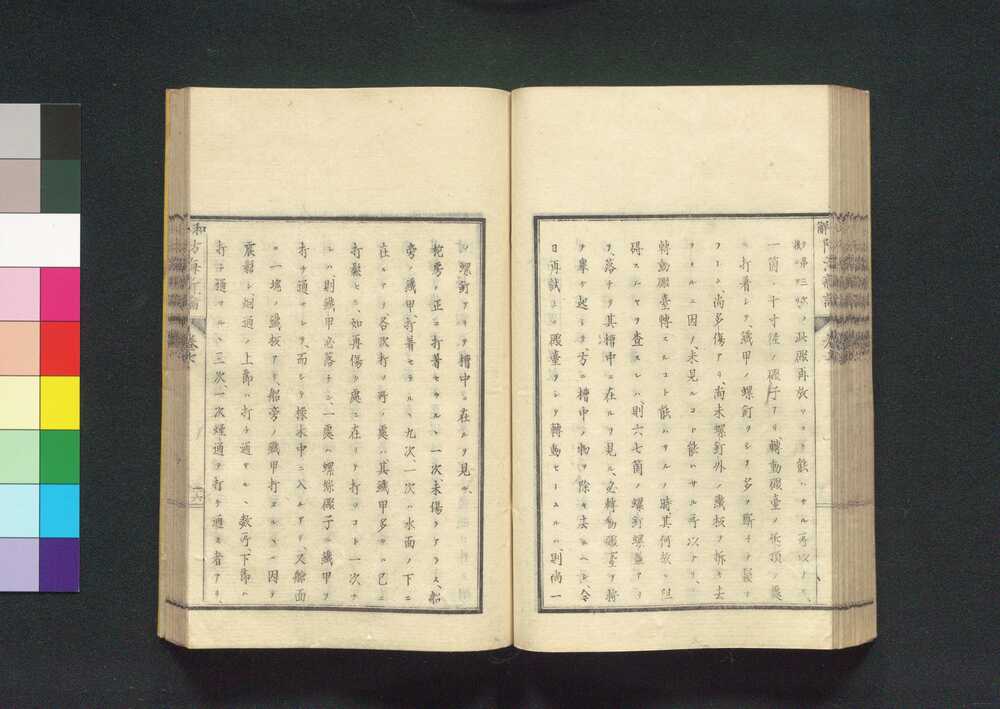 一箇ノ十寸徑ノ礮子アリ、轉動礮臺ノ柩頂ノ處
ニ打着シテ、鐵甲ノ螺釘ヲシテ多ク斷チテ鬆
フシム、尚多傷アリ、尚未螺釘外ノ鐵板ヲ拆キ去
ラサルニ因テ、未見ルコト能ハサル所以アリ、
轉動礮臺轉スルコト能ハサルノ時、其何故ニ阻
碍スルヤヲ查スレハ、則六七箇ノ螺釘螺蓋アリ
テ、落チテ其槽中ニ在ルヲ見ル、必轉動礮臺ヲ將
テ舉ケ起シテ、方ニ槽中ノ物ヲ除キ去ルヘシ、今
日再試ミニ礮臺ヲシテ轉動セシムルハ、則尚一
ノ螺釘アリテ槽中ニ在ルヲ見ル、
舵房ノ正ニ打着セラルヽ一次、未傷ヲアラス、船
旁ノ鐵甲、打着セラルヽ九次、一次ハ水面ノ下ニ
在ルアリ、各次打ノ所ノ處ハ其鐵甲多クハ已ニ
打鬆セニ、如再傷ク處ニ在リテ打ツコト一次ナ
レハ、則鐵甲必落チン、一處ハ螺絲礮子ニ鐵甲ヲ
打チ通サレテ、而シテ標木中ニ入ルアリ、又艙面
ニ一塊ノ鐵板アリ、船旁ノ鐵甲打
震鬆シ、烟通ノ上節ハ打チ過サル、數所、下節ハ
打チ通サルヽ三次、一次煙通ヲ打チ通ス者アリ、